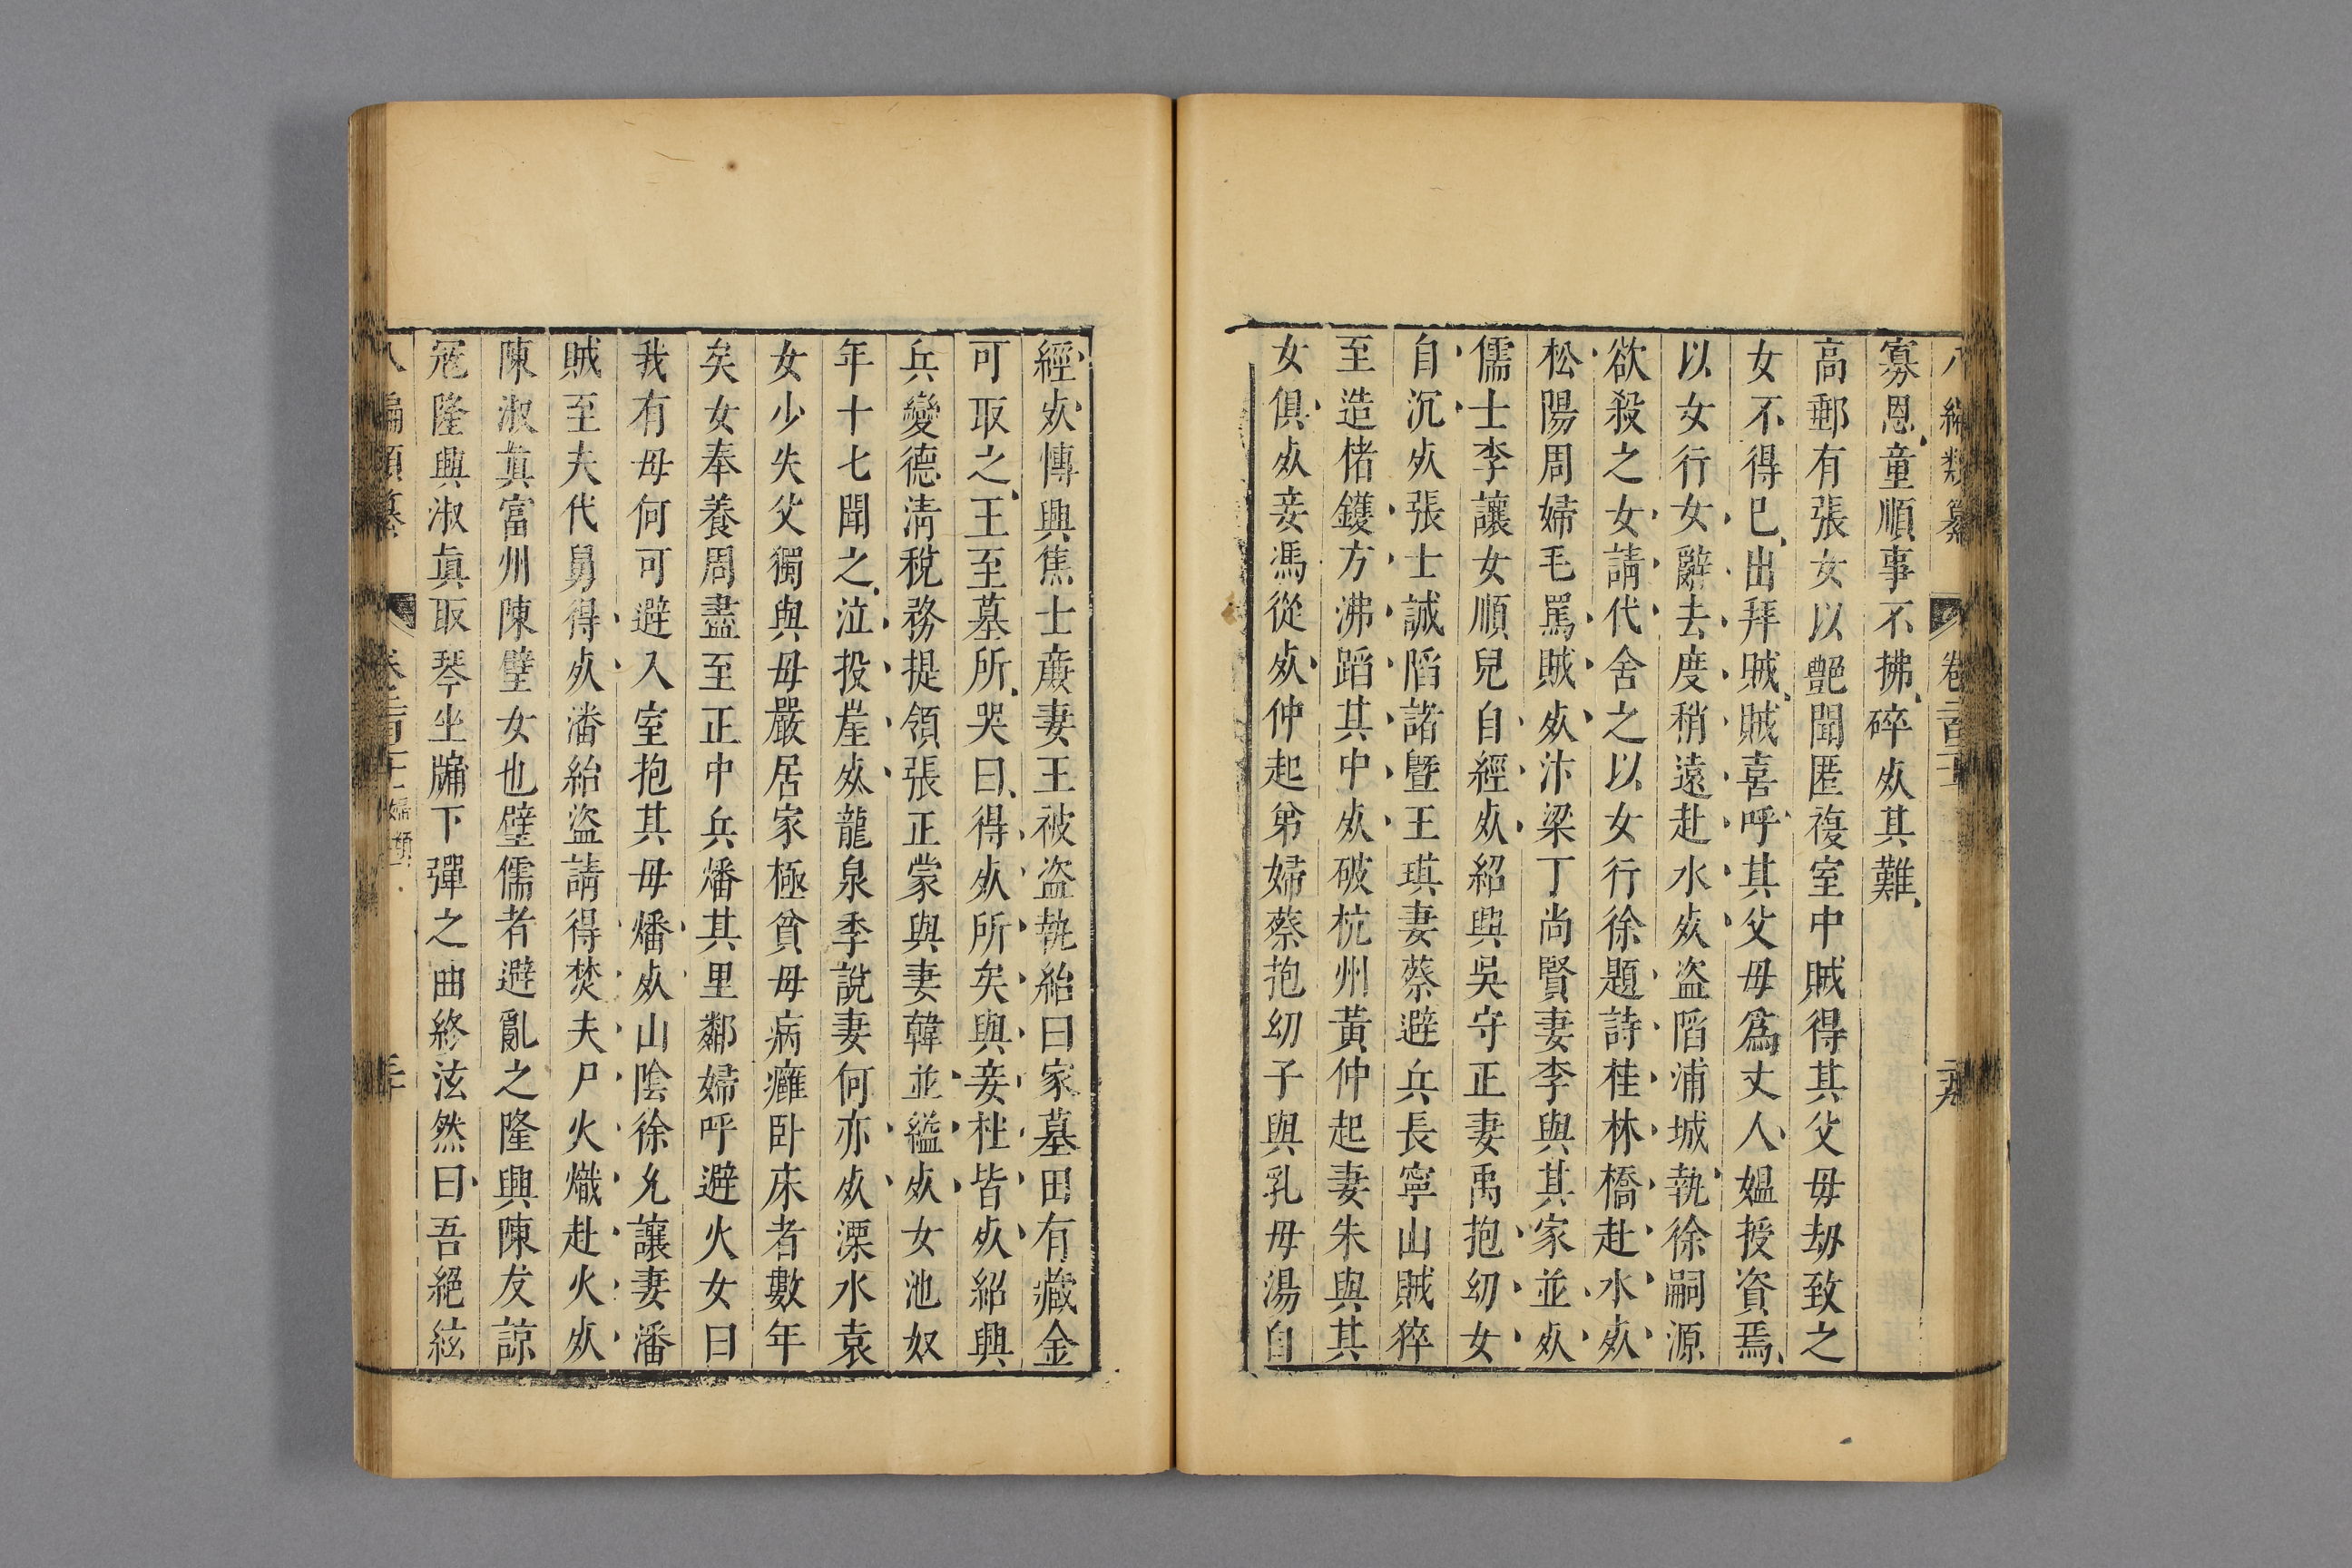 八編類纂 卷二百
寡恩童順事不拂碎灰其難
高郵有張女以艶聞匿複室中賊得其父母劫致之
女不得已出拜賊賊喜呼其父母爲丈人媼授資焉
以女行女辭去度稍遠赴水灰盜䧟浦城執徐嗣源
欲殺之女請代舍之以女行徐題詩桂林橋赴水灰
松陽周婦毛罵賊灰汴梁丁尚賢妻李與其家並灰
儒士李讓女順兒自經灰紹興吳守正妻禹抱幼女
自沉灰張士誠䧟諸曁王琪妻蔡避兵長寧山賊猝
至造楮鑊方沸蹈其中灰破杭州黃仲起妻朱與其
女俱灰妾馮從灰仲起弟婦蔡抱幼子與乳母湯自
經灰慱興焦士㢘妻王被盜執紿曰家墓田有藏金
可取之王至墓所哭曰得灰所矣與妾杜皆灰紹興
兵變德淸稅務提領張正蒙與妻韓並縊灰女池奴
年十七聞之泣投崖灰龍泉季說妻何亦灰溧水袁
女少失父獨與母嚴居家極貧母病癱臥床者數年
矣女奉養周盡至正中兵燔其里鄰婦呼避火女曰
我有母何可避入室抱其母燔灰山陰徐允讓妻潘
賊至夫代舅得灰潘紿盜請得焚夫尸火熾赴火灰
陳淑真富州陳璧女也璧儒者避亂之隆興陳友諒
冦隆興淑真取琴坐牖下彈之曲終泫然曰吾絕絃
八編類纂 卷二百 婦類